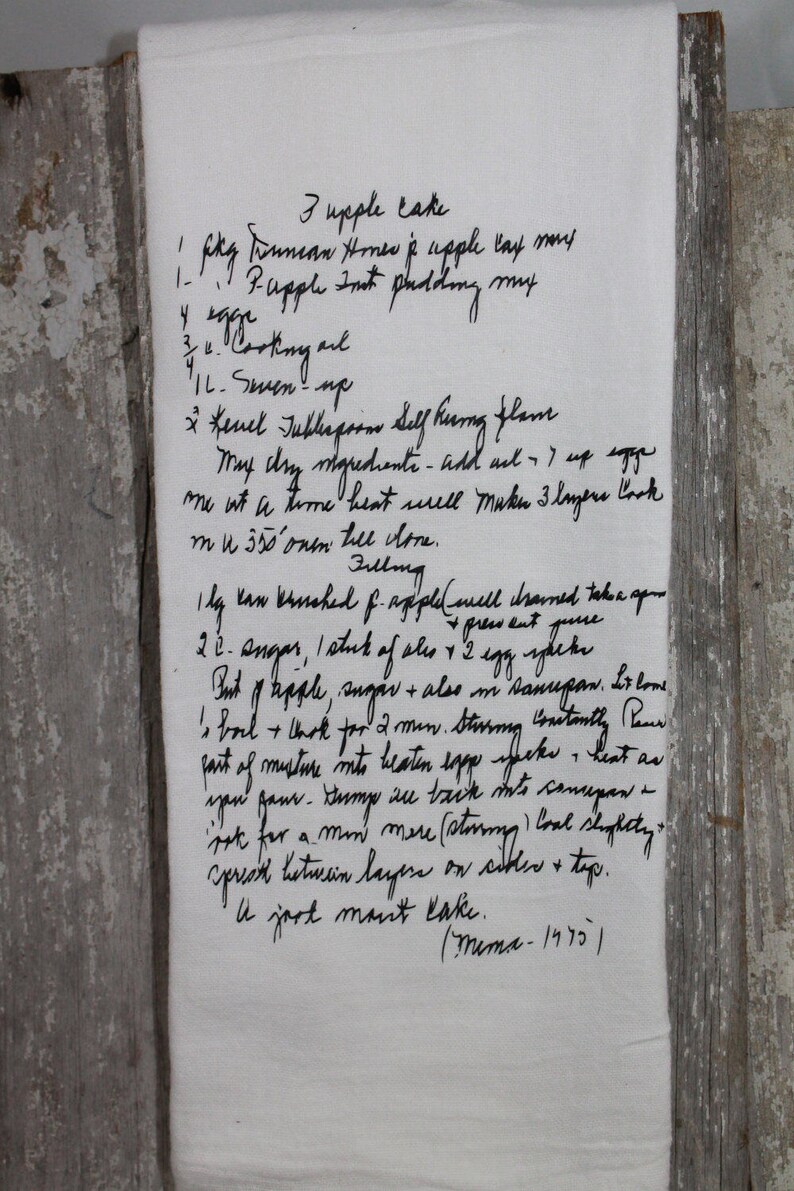 P apple Cake
1 pkg Duncan Hines p apple cake mix
1 - " P-apple Inst pudding mix
4 eggs
3/4 c. Cooking oil
1 C. Seven-up
Level Tablespoon Self Rising flour
Mix dry ingredients - add oil + 7 up eggs
one at a time beat well Makes 3 layers Cook
in a 350° oven till done.
Filling
1 lg can crushed p-apple (well drained take a spoon
+ press out juice
2 C- sugar, 1 stick of oleo + 2 egg yolks
Put p apple, sugar + oleo in saucepan. Let come
boil + cook for 2 min. Stirring Constantly Pour
part of mixture into beaten egg yolks + beat as
you pour - Dump all back into saucepan +
ook for a min more (stirring) Cool slightly +
spread between layers on sides + top.
A good moist Cake.
(Mema - 1975)